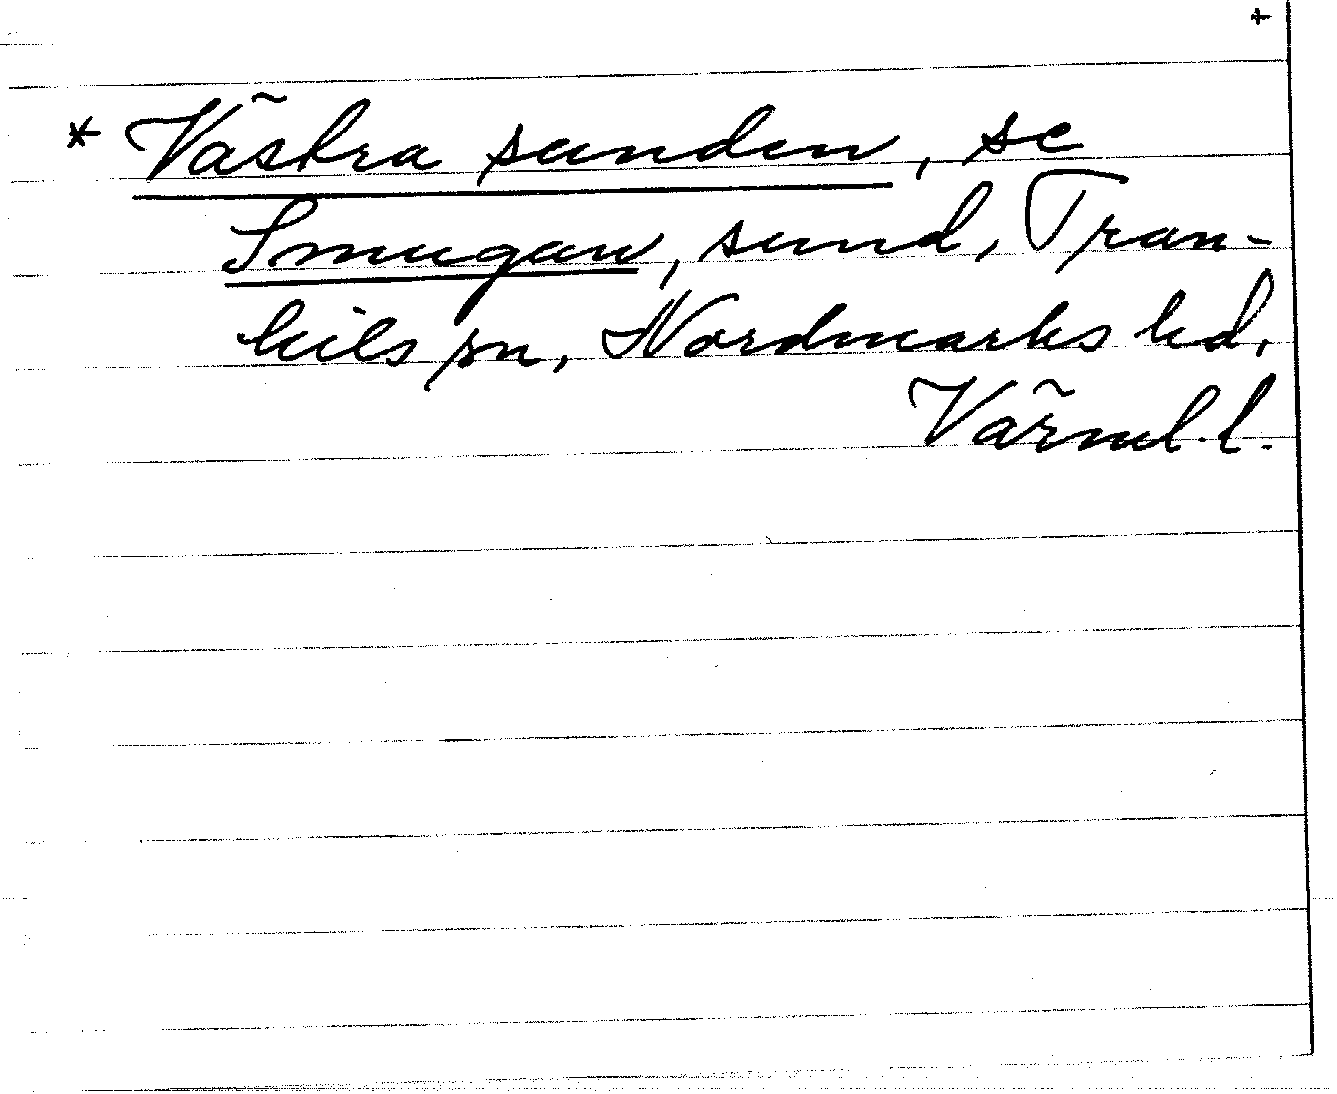 +
* Västra sunden, se
Smugan, sund, Tran-
kils sn, Nordmarks hd,
Värml. l.